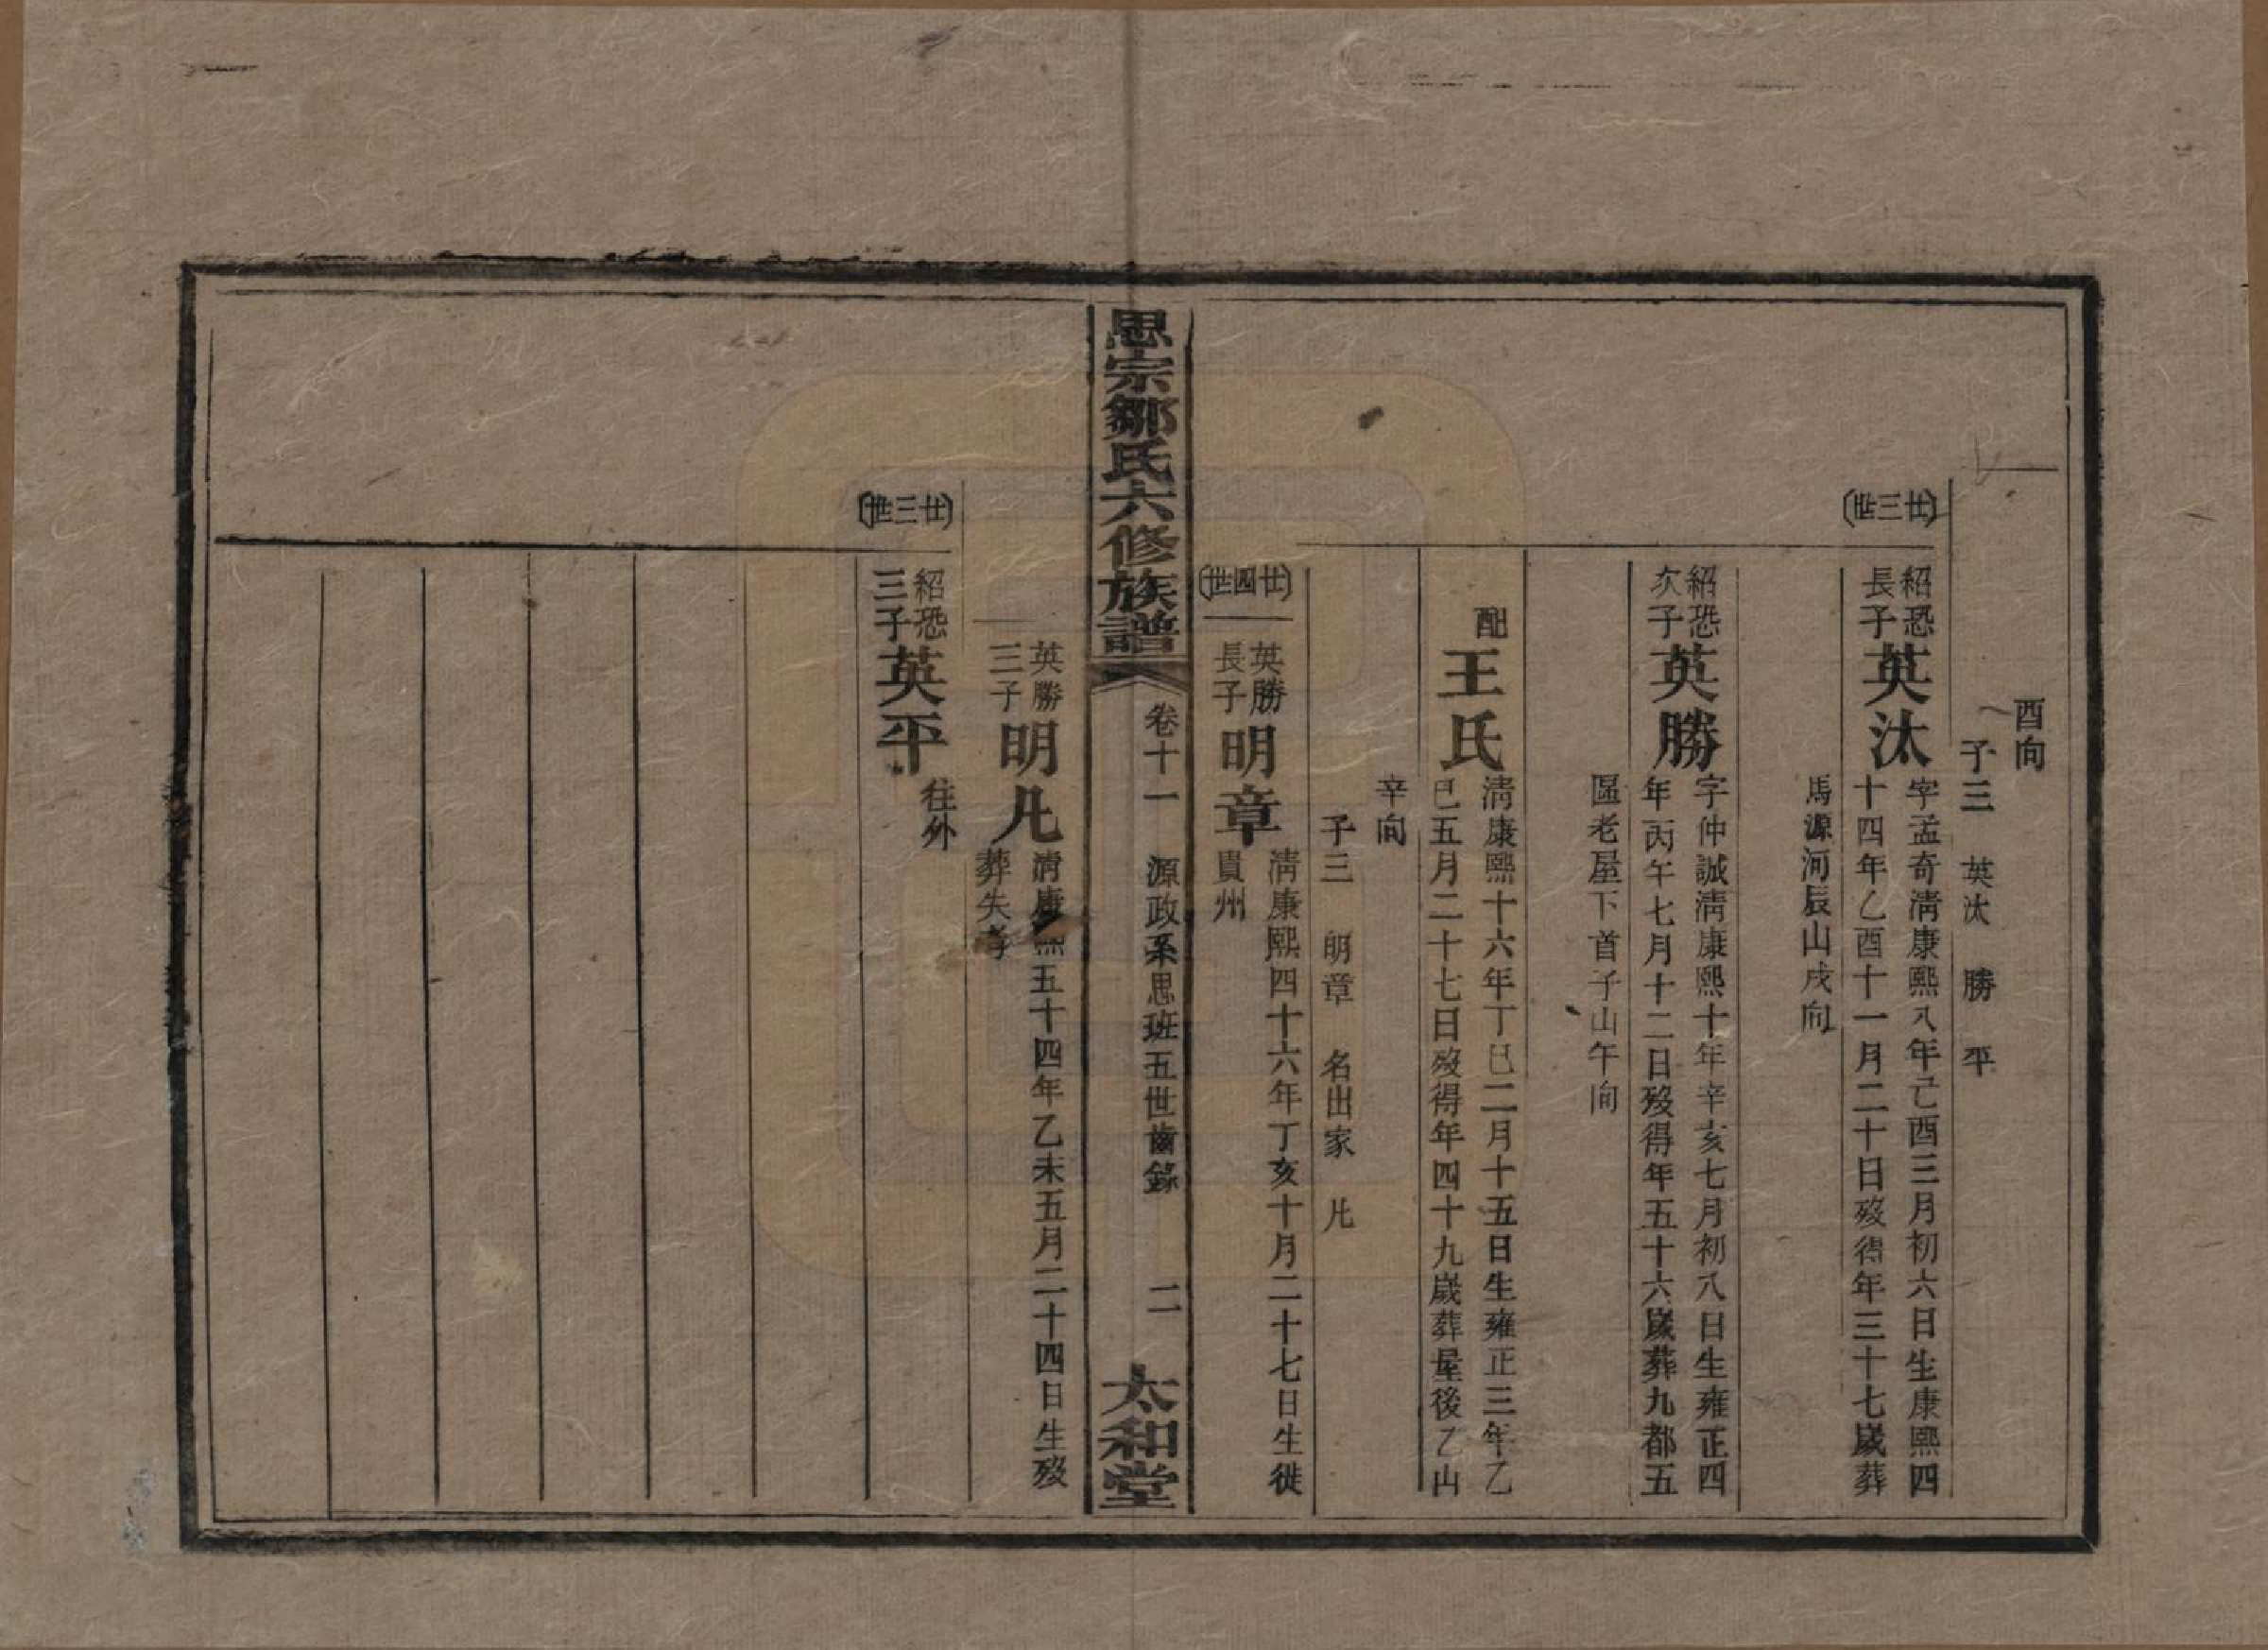 酉向
子三　英汰　勝　平
廿三世
紹恐長子英汰字孟奇淸康熙八年己酉三月初六日生康熙四
十四年乙酉十一月二十日歿得年三十七歲葬
馬源河辰山戌向
紹恐次子英勝字仲誠淸康熙十年辛亥七月初八日生雍正四
年丙午七月十二日歿得年五十六歲葬九都五
區老屋下首子山午向
配王氏淸康熙十六年丁巳二月十五日生雍正三年乙
巳五月二十七日歿得年四十九歲葬屋後乙山
辛向
子三　明章　名出家　凢
廿四世
英勝長子明章淸康熙四十六年丁亥十月二十七日生徙
貴州
思宗鄒氏六修族譜　卷十一　源政系思班五世齒錄　二　太和堂
英勝三子明凢淸康熙五十四年乙未五月二十四日生歿
葬失考
廿三世
紹恐三子英平往外